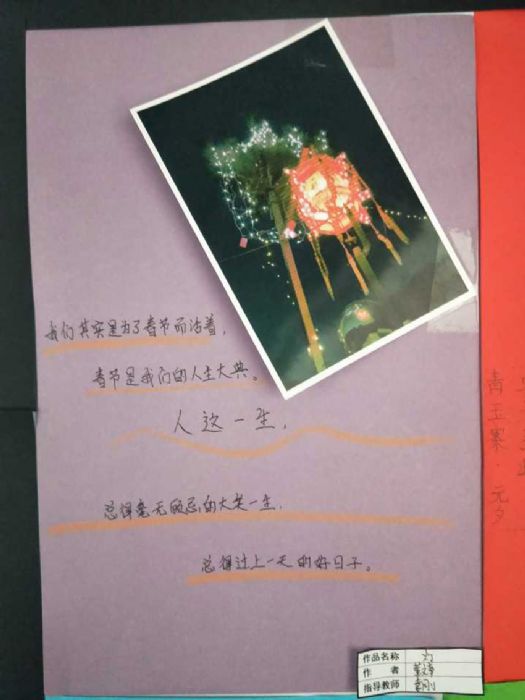 我们其实是为了春节而活着，
春节是我们的人生大典。
人这一生，
总得毫无顾忌的大笑一生，
总得过上一天的好日子。
青玉案·元夕
作品名称 为
作 者
指导教师